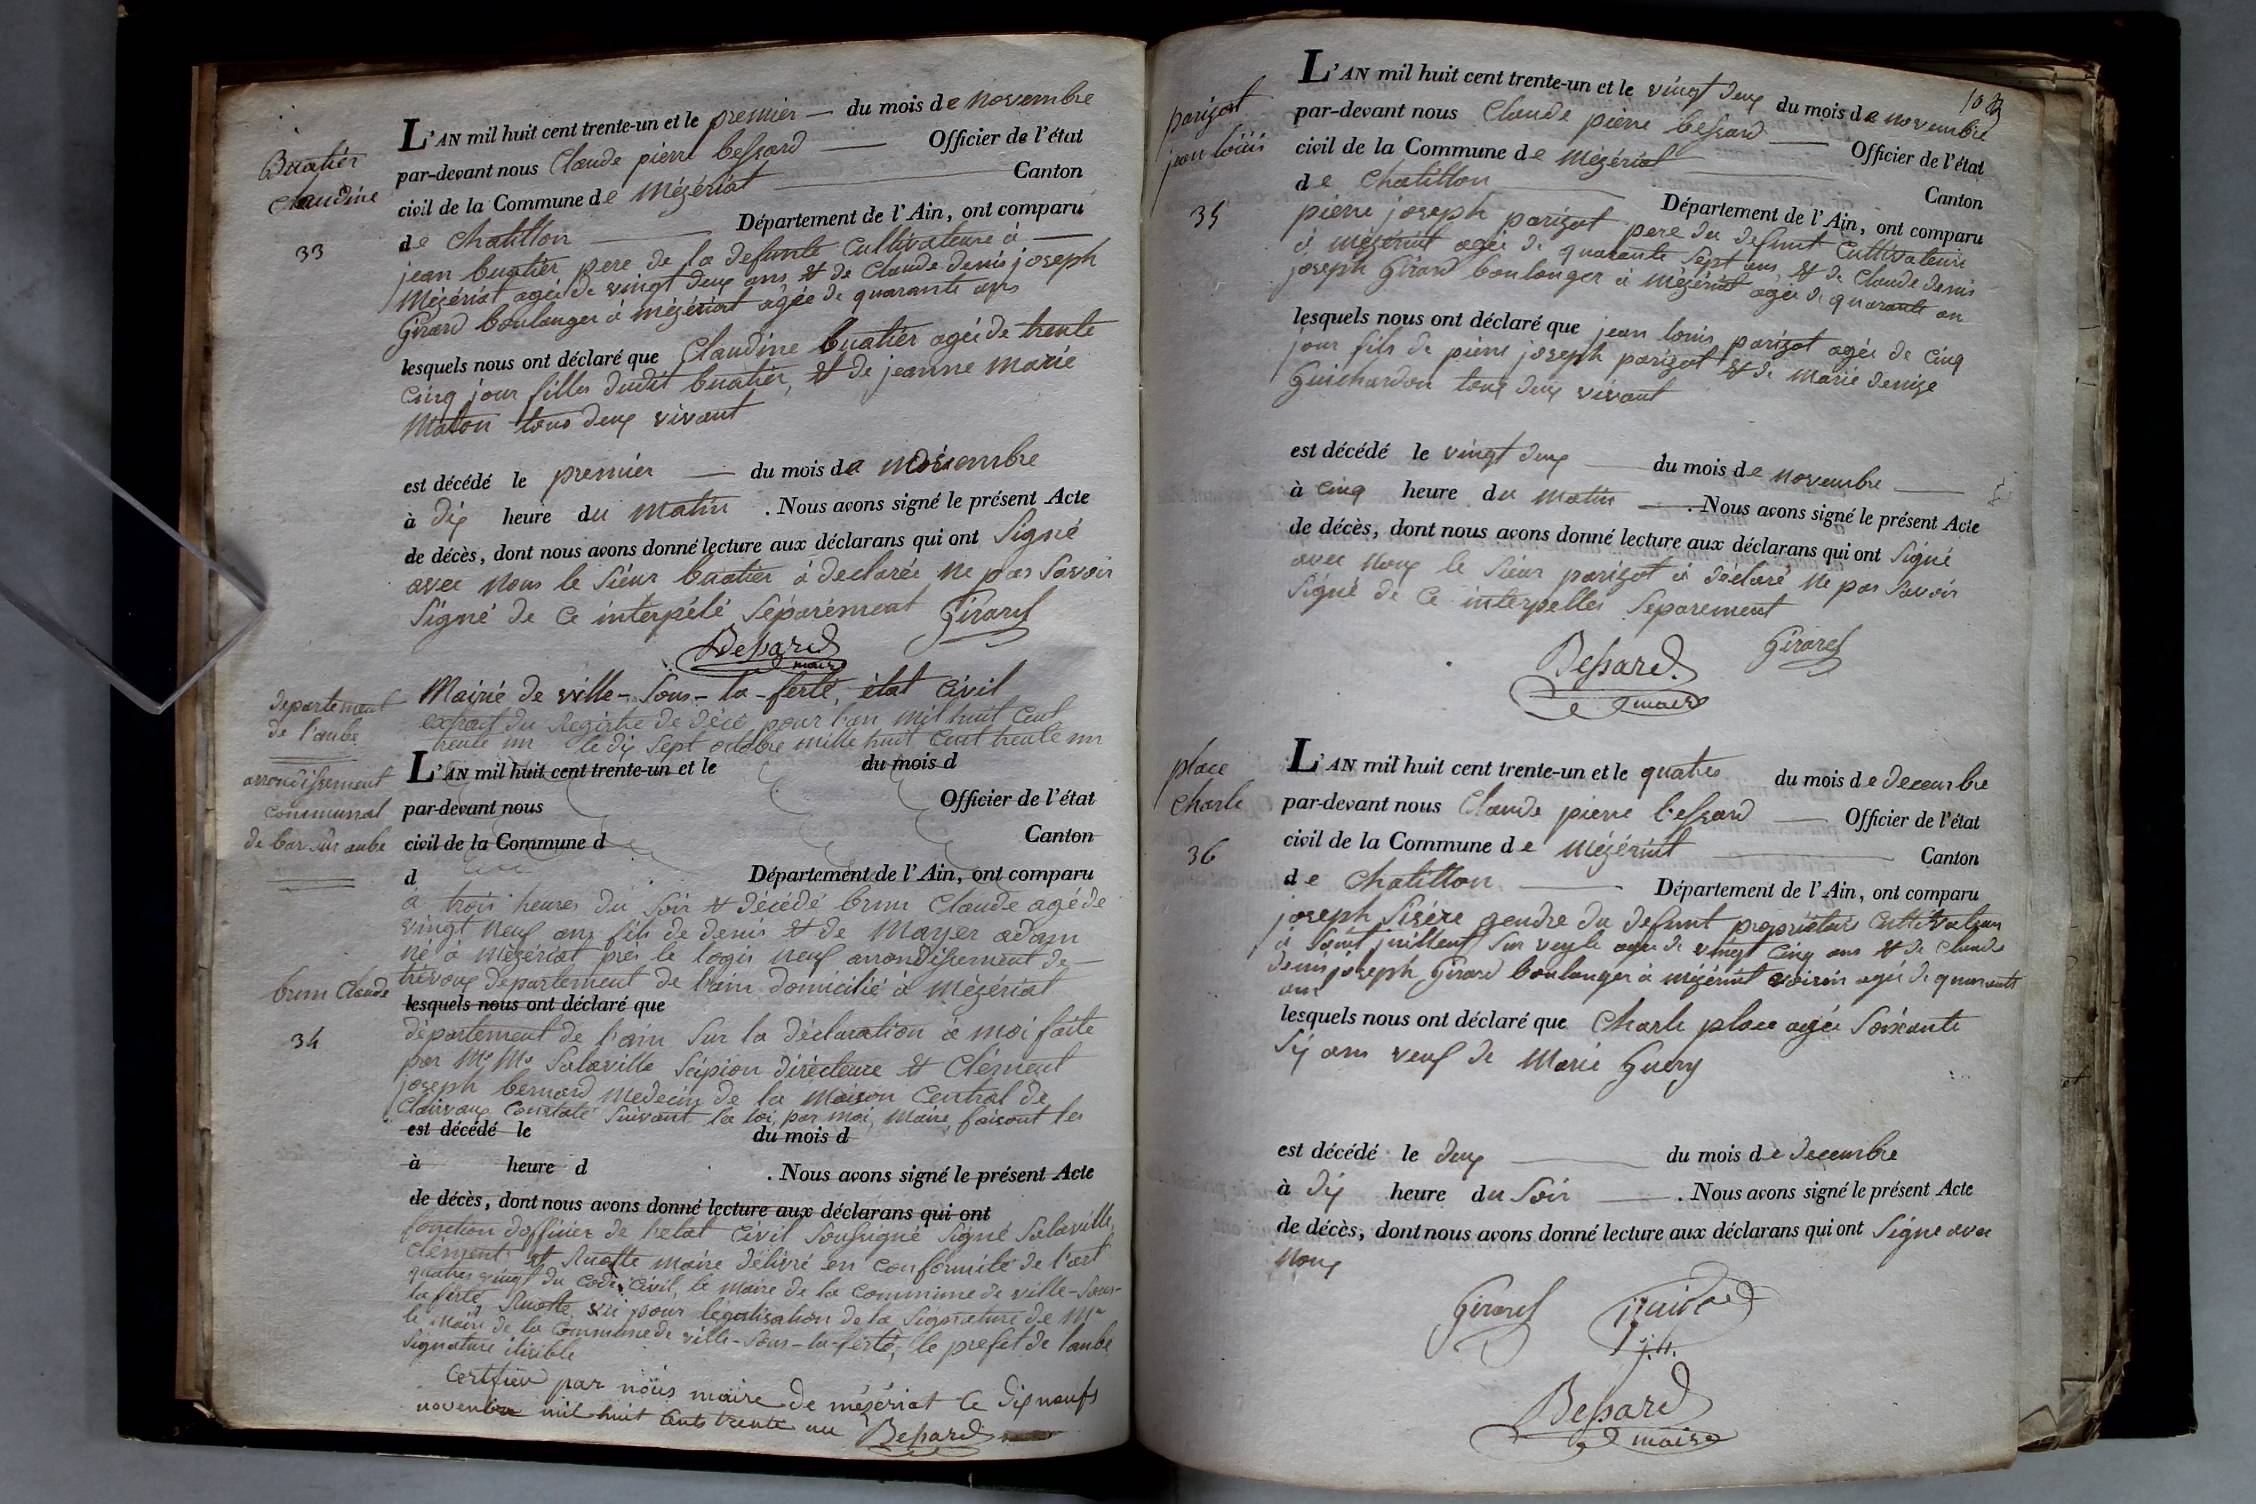 Buatier
Claudine
33
L'AN mil huit cent trente-un et le premier — du mois de novembre
par-devant nous Claude pierre bessard — Officier de l'état
civil de la Commune de Mézériat — Canton
de Chatillon — Département de l'Ain, ont comparu
jean buatier pere de la defunte Cultivateure à —
Mézériat agée de vingt deux ans et de Claude denis joseph
Girard boulanger à mézériat agée de quarante ans
lesquels nous ont déclaré que Claudine buatier agée de trente
cinq jour filles dudit buatier, et de jeanne marie
Maton tous deux vivant
est décédé le premier — du mois de novembre
à dix heure du matin . Nous avons signé le présent Acte
de décès, dont nous avons donné lecture aux déclarans qui ont Signé
avec nous le Sieur buatier à declarée ne pas Savoir
Signé de ce interpélé Séparément Girard
Bessard
maire
departement
de l'aube
arrondissement
communal
de bar sur aube
Mairie de ville-Sous-la-ferté, état Civil
extrait du Registre de décé pour l'an mil huit cent
trente un le dix Sept octobre mille huit cent trente un
L'AN mil huit cent trente-un et le du mois d
par-devant nous Officier de l'état
civil de la Commune d Canton
d Département de l'Ain, ont comparu
à trois heures du Soir et décédé brun Claude agé de
vingt neuf ans fils de denis et de Mayer adam
né à mézériat près le logis neuf arrondissement de —
trévoux département de l'ain domicilié à Mézériat
brun Claude
34
lesquels nous ont déclaré que
département de l'ain Sur la déclaration à moi faite
par Mrs Mrs Salaville Scipion directeure et Clément
joseph bernard medecin de la maison Central de
Clairvaux Constaté Suivant la loi, par moi, maire, faisant les
est décédé le du mois d
à heure d . Nous avons signé le présent Acte
de décès, dont nous avons donné lecture aux déclarans qui ont
fonction d'officier de l'etat Civil Soussigné Signé Salaville,
Clément et Ruotte maire délivré en conformité de l'art
quatre vingt du code Civil, le maire de la Commune de ville-Sous-
la ferté, Ruotte, vu pour légalisation de la Signature de Mr
le maire de la Commune de ville-Sous-la-ferté, le prefet de l'aube
Signature ilisible
Certifier par nous maire de mézériat le dix neufs
novembre mil huit cents trente un Bessard
103
parizot
jean louis
35
L'AN mil huit cent trente-un et le vingt deux du mois de novembre
par-devant nous Claude pierre bessard — Officier de l'état
civil de la Commune de Mézériat — Canton
de Chatillon — Département de l'Ain, ont comparu
pierre joseph parizot pere du defunt Cultivateure
à mézériat agée de quarante Sept ans et de Claude denis
joseph Girard boulanger à mézériat agée de quarante an
lesquels nous ont déclaré que jean louis parizot agée de cinq
jour fils de pierre joseph parizot et de marie denize
Guichardon tous deux vivant
est décédé le vingt deux — du mois de novembre —
à cinq heure du matin — . Nous avons signé le présent Acte
de décès, dont nous avons donné lecture aux déclarans qui ont Signé
avec nous le Sieur parizot à déclaré ne pas Savoir
Signé de ce interpelles Séparement
Bessard Girard
maire
place
Charle
36
L'AN mil huit cent trente-un et le quatres du mois de decembre
par-devant nous Claude pierre bessard — Officier de l'état
civil de la Commune de Mézériat — Canton
de Chatillon — Département de l'Ain, ont comparu
joseph gendre du defunt propriétaire Cultivateur
à Saint juillent Sur veyle agée de vingt cinq ans et de Claude
denis joseph Girard boulanger à mézériat voisin agée de quarante
ans
lesquels nous ont déclaré que Charle place agée Soixante
Six ans veuf de Marie Guery
est décédé le deux — du mois de decembre
à dix heure du Soir — . Nous avons signé le présent Acte
de décès, dont nous avons donné lecture aux déclarans qui ont Signé avec
nous
Girard
Bessard
maire